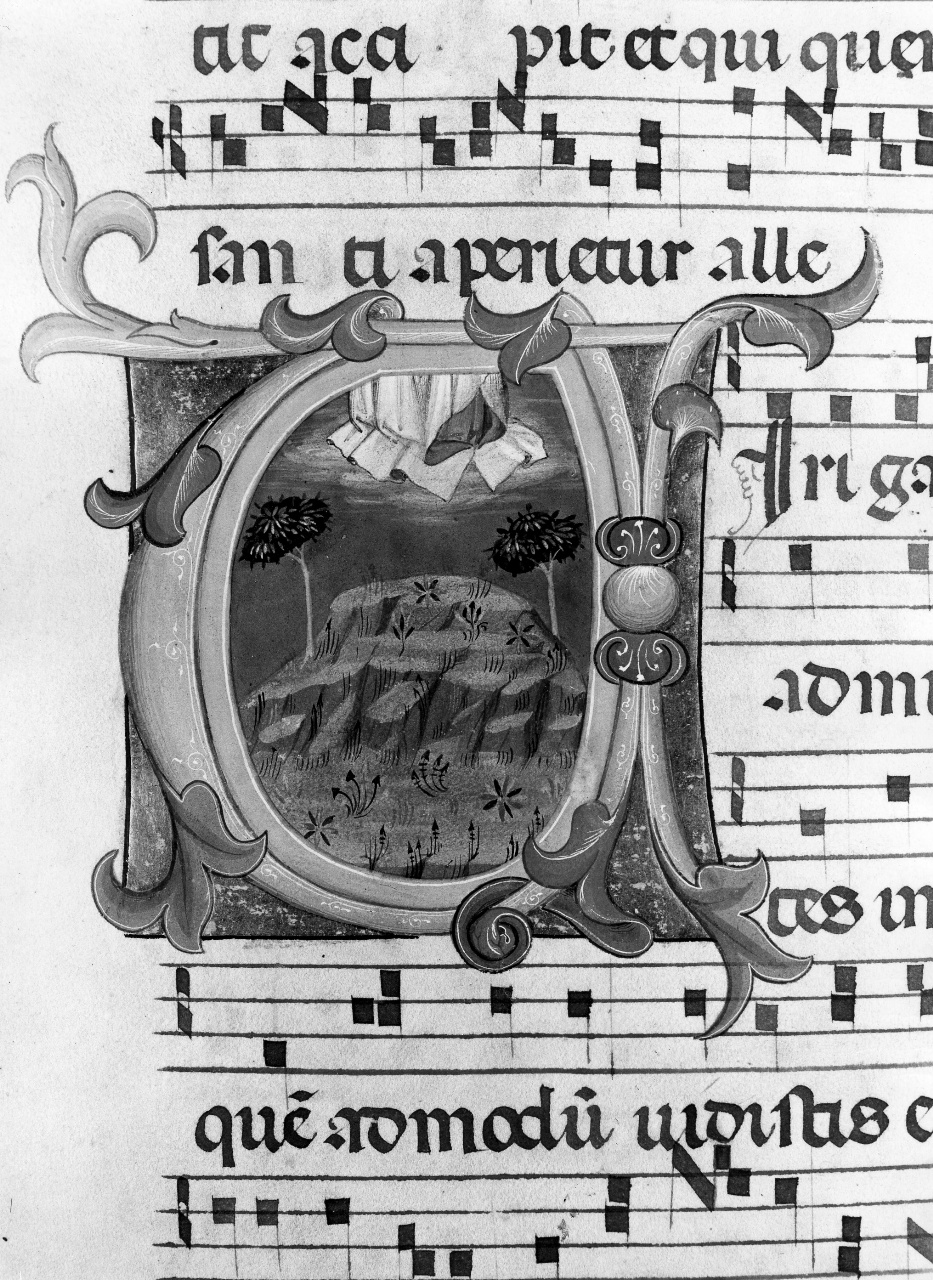 tit acci pit et qui quer
san ti aperietur alle
Viri ga
admi
tes in
quē admodū uidistis e